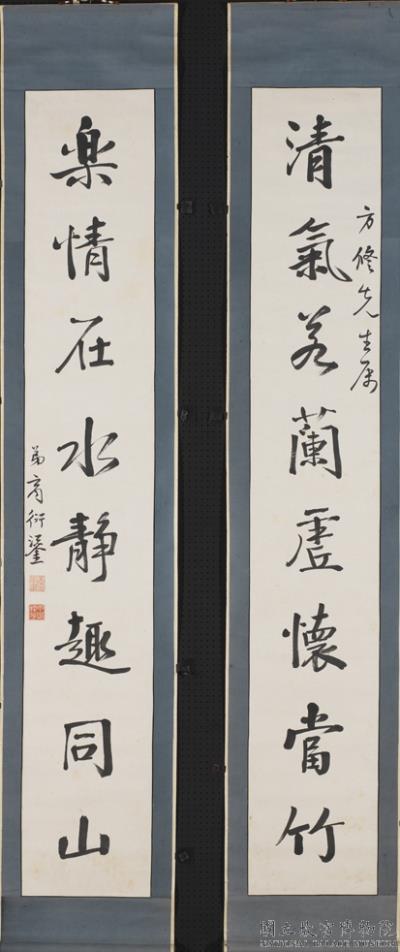 清氣若蘭虛懷當竹
方修先生属
樂情在水靜趣同山
弟商衍鎏
國立故宮博物院
NATIONAL PALACE MUSEUM